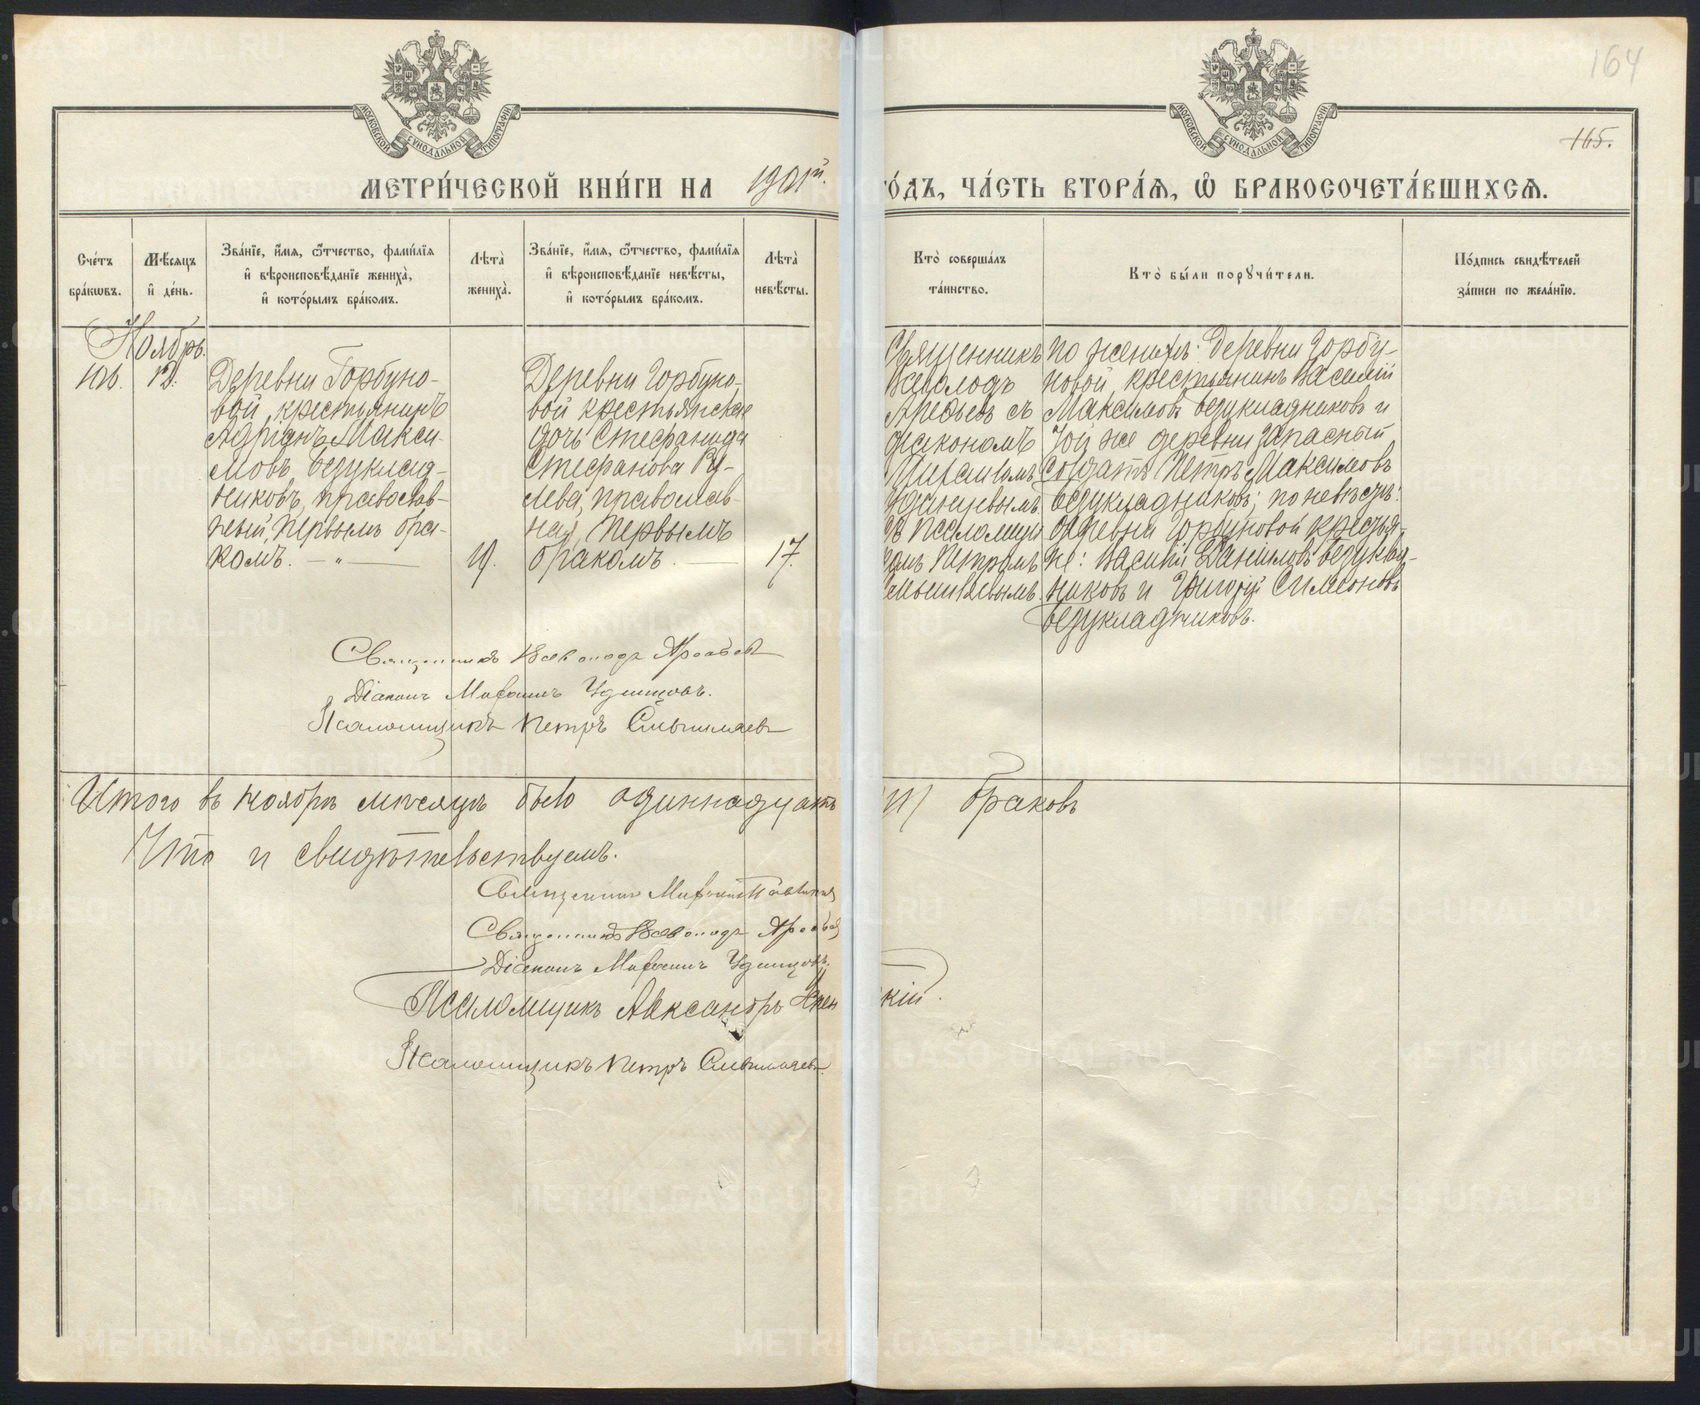 164
165.
МОСКОВСКОЙ СѴНОДАЛЬНОЙ ТИПОГРАФІИ
МОСКОВСКОЙ СѴНОДАЛЬНОЙ ТИПОГРАФІИ
МЕТРИ́ЧЕСКОЙ КНИ́ГИ НА 1901й.
ГО́ДЪ, ЧА́СТЬ ВТОРА́Ѧ, Ѡ҆ БРАКОСОЧЕТА́ВШИХСѦ.
Сче́тъ бра́кѡвъ.
Мѣ́сѧцъ и҆ де́нь.
Зва́нїе, и҆́мѧ, ѻ҆́тчество, фами́лїѧ и҆ вѣроисповѣ́данїе жениха̀, и҆ кото́рымъ бра́комъ.
Лѣта̀ жениха̀.
Зва́нїе, и҆́мѧ, ѻ҆́тчество, фами́лїѧ и҆ вѣроисповѣ́данїе невѣ́сты, и҆ кото́рымъ бра́комъ.
Лѣта̀ невѣ́сты.
Кто̀ соверша́лъ та́инство.
Кто̀ бы́ли порꙋчи́тели.
По́дпись свидѣ́телей за́писи по жела́нїю.
Ноябрь.
106.
12.
Деревни Горбуно-
вой, крестьянинъ
Адріанъ Макси-
мовъ Безуклад-
никовъ, православ-
ный, первымъ бра-
комъ. — " —
19.
Деревни Горбуно-
вой крестьянская
дочь Стефанида
Стефанова Ру-
лева, православ-
ная, первымъ
бракомъ. —
17.
Священникъ
Всеволодъ
съ
діакономъ
Михаиломъ
Удинцевымъ
и псаломщи
комъ Петромъ
по женихѣ: деревни Горбу-
новой, крестьянинъ Василій
Максимовъ Безукладниковъ и
той же деревни запасный
солдатъ Петръ Максимовъ
Безукладниковъ; по невѣстѣ:
деревни Горбуновой крестья-
не: Василій Даніиловъ Безуклад-
никовъ и Григорій Симеоновъ
Безукладниковъ.
Священникъ Всеволодъ
Діаконъ Михаилъ Удинцовъ.
Псаломщикъ Петръ
Итого въ ноябрѣ мѣсяцѣ было одиннадцать
(11) браковъ
Что и свидѣтельствуемъ.
Священникъ Михаилъ
Священникъ Всеволодъ
Діаконъ Михаилъ Удинцовъ.
Псаломщикъ Александръ
скій.
Псаломщикъ Петръ
METRIKI.GASO-URAL.RU